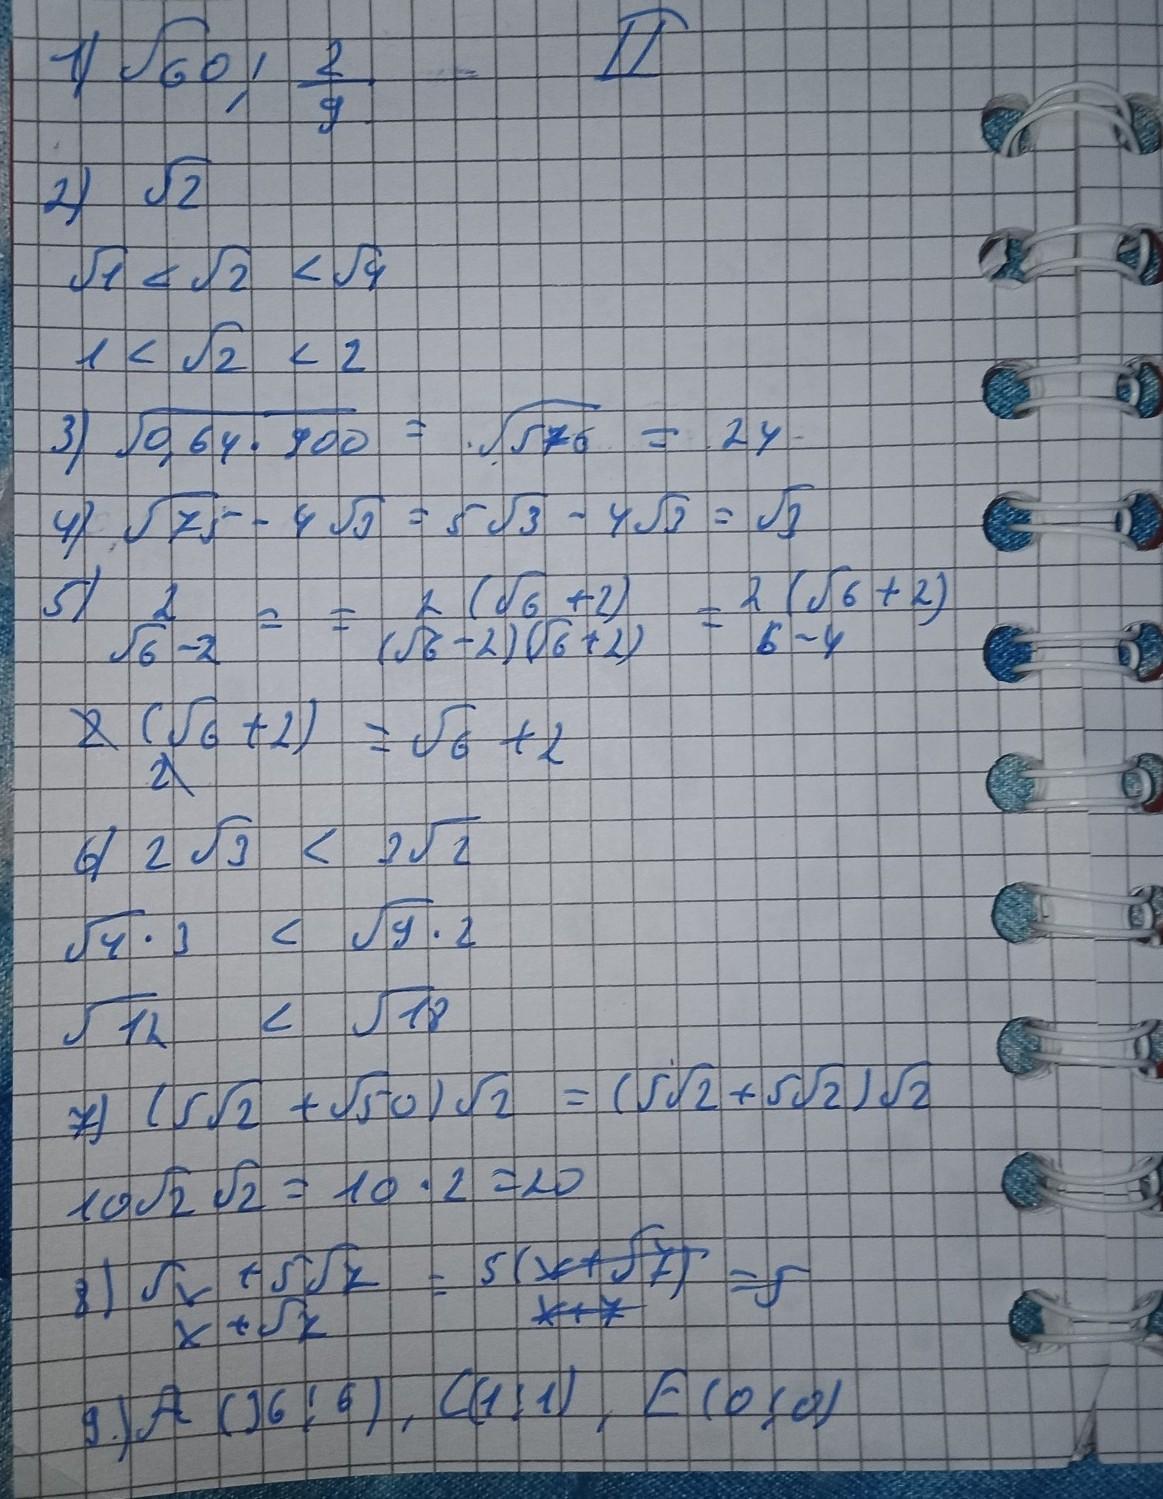 1) √60; 2/9 II
2) √2
√1 < √2 < √4
1 < √2 < 2
3) √0,64 · 900 = √576 = 24
4) √75 - 4√3 = 5√3 - 4√3 = √3
5) 2/(√6 - 2) = = 2(√6 + 2)/((√6 - 2)(√6 + 2)) = 2(√6 + 2)/(6 - 4)
2(√6 + 2)/2 = √6 + 2
6) 2√3 < 3√2
√4 · 3 < √9 · 2
√12 < √18
7) (5√2 + √50)√2 = (5√2 + 5√2)√2
10√2 √2 = 10 · 2 = 20
8) (√x + 5√7)/(x + √7) = 5(x + √7)/(x + 7) = 5
9.) A (36; 6), C(1; 1), E (0; 0)